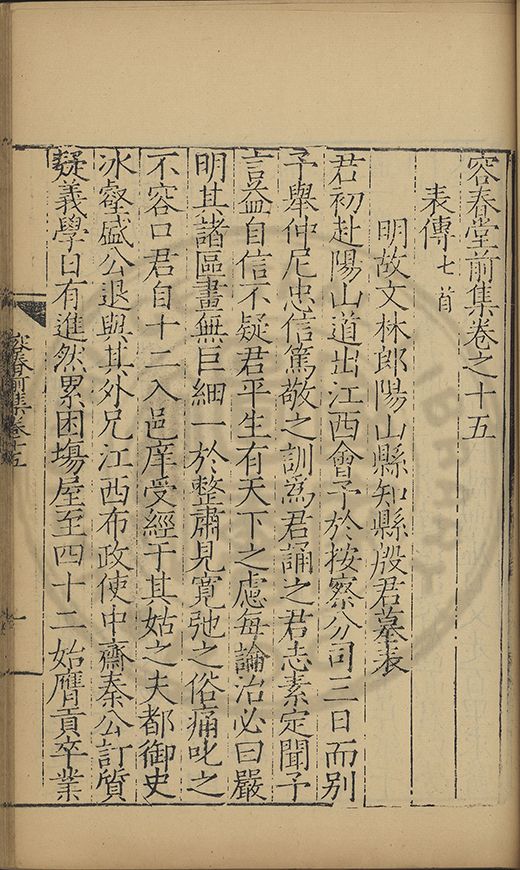 容春堂前集卷之十五
表傳七首
明故文林郎陽山縣知縣殷君墓表
君初赴陽山道出江西會予於按察分司三日而別
予舉仲尼忠信篤敬之訓為君誦之君志素定聞予
言益自信不疑君平生有天下之慮每論治必曰嚴
明其諸區畫無巨細一於整肅見寬弛之俗痛叱之
不容口君自十二入邑庠受經于其姑之夫都御史
冰壑盛公退與其外兄江西布政使中齋秦公訂質
疑義學日有進然累困場屋至四十二始膺貢卒業
容春前集卷十五
一